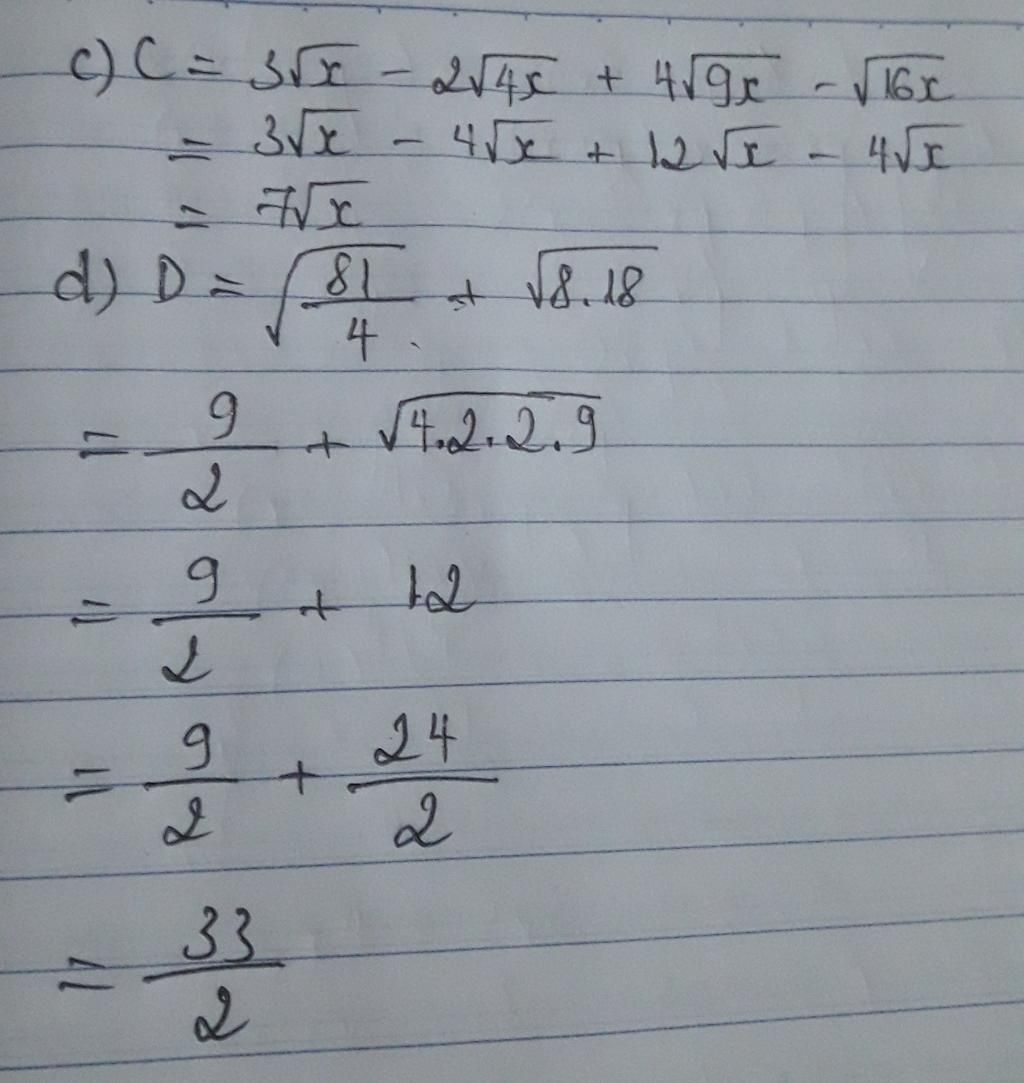 c) C = 3√x − 2√4x + 4√9x − √16x
= 3√x − 4√x + 12√x − 4√x
= 7√x
d) D = √(81/4) + √8.18
= 9/2 + √4.2.2.9
= 9/2 + 12
= 9/2 + 24/2
= 33/2